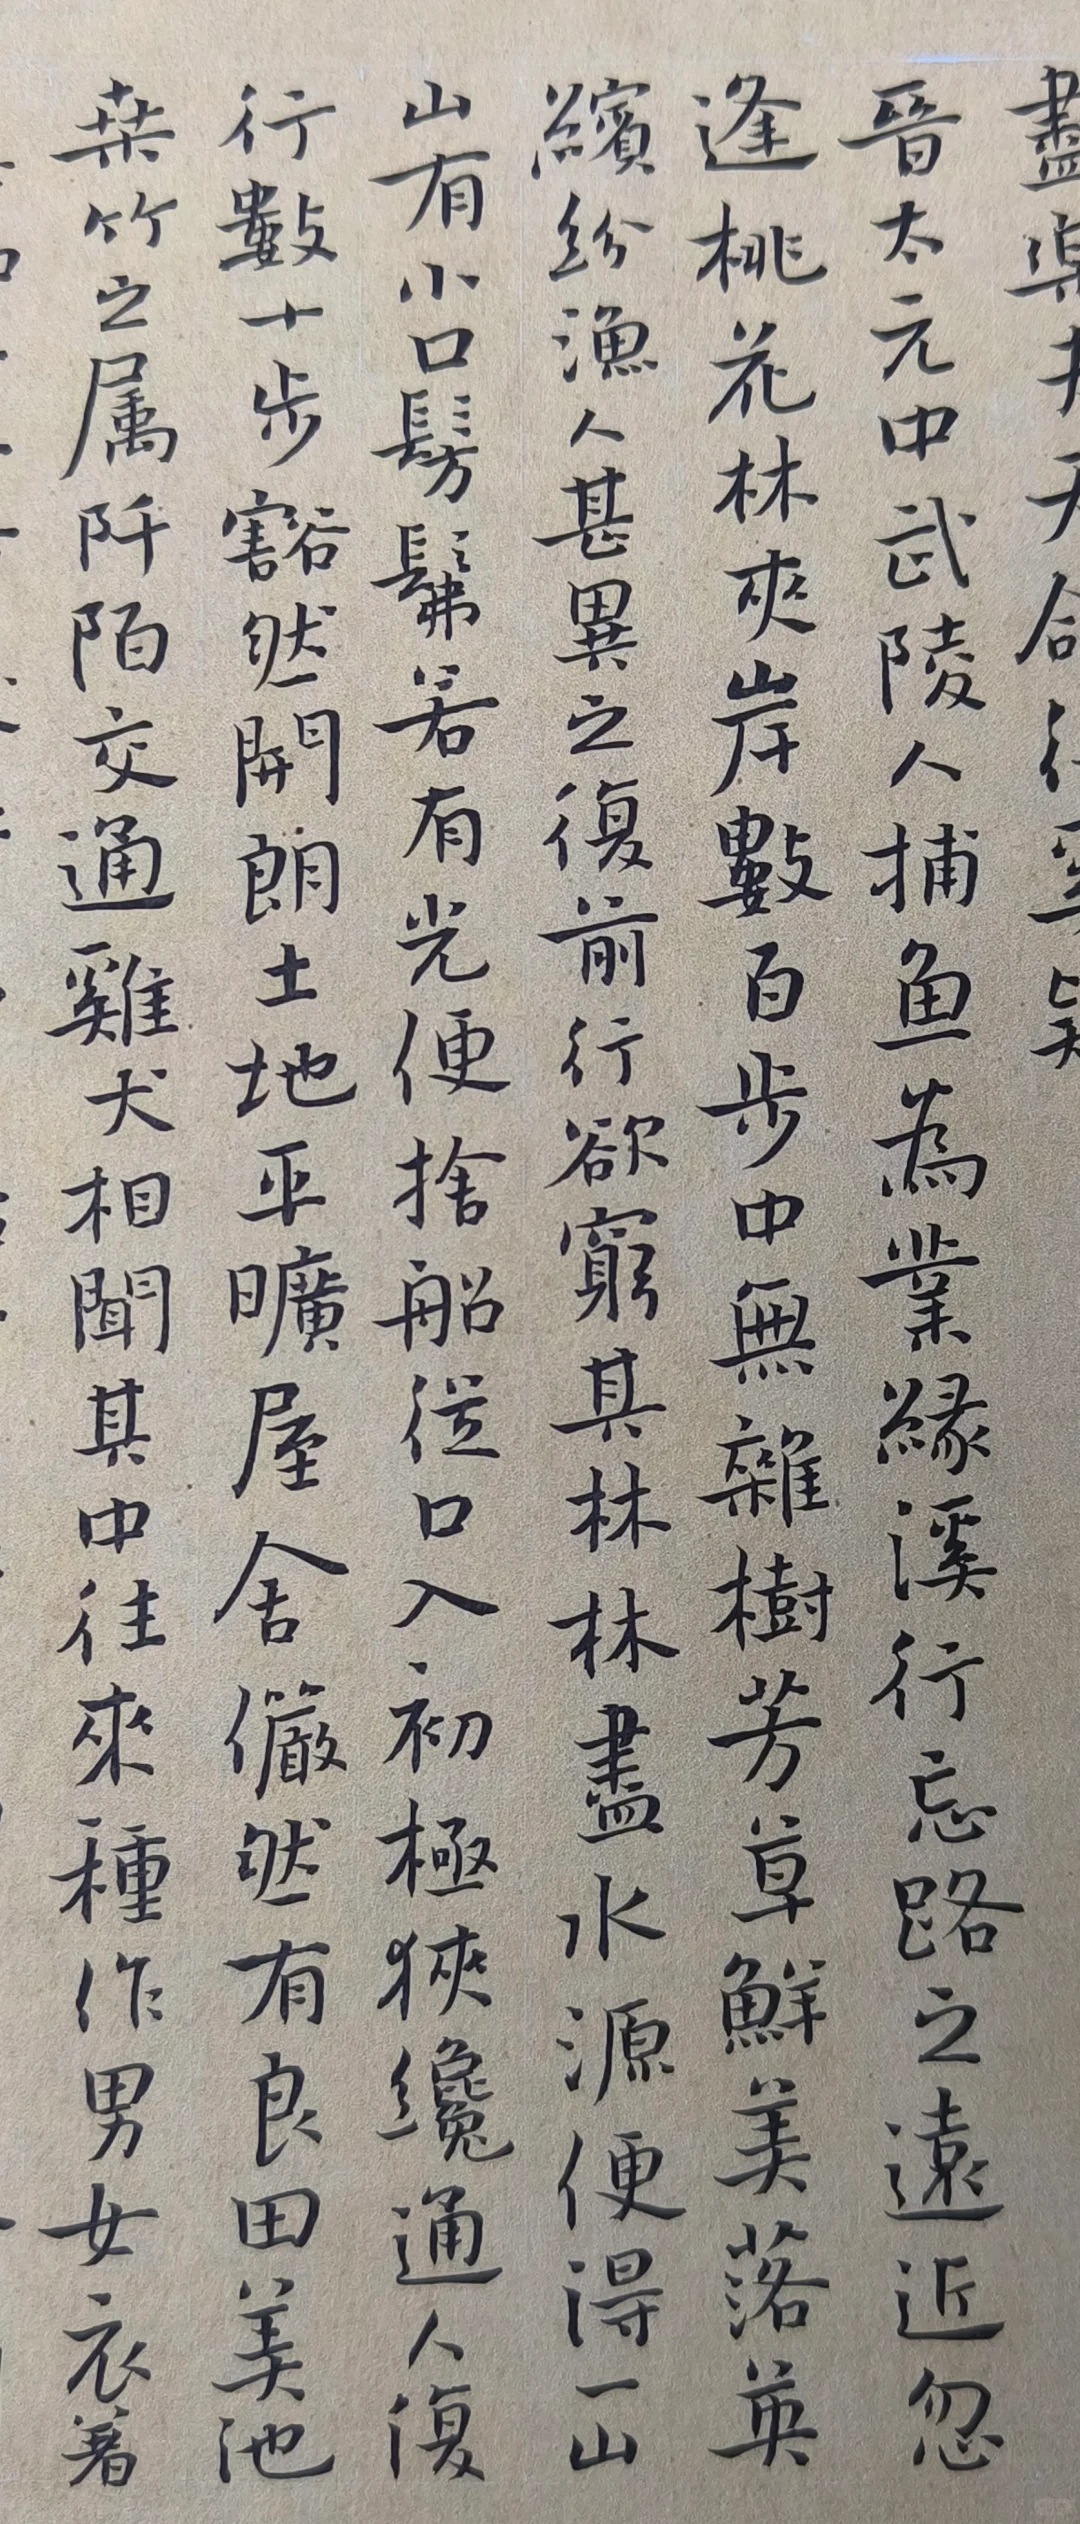 盡樂夫天命復奚疑
晉太元中武陵人捕魚為業緣溪行忘路之遠近忽
逢桃花林夾岸數百步中無雜樹芳草鮮美落英
繽紛漁人甚異之復前行欲窮其林林盡水源便得一山
山有小口髣髴若有光便捨船從口入初極狹纔通人復
行數十步豁然開朗土地平曠屋舍儼然有良田美池
桑竹之属阡陌交通雞犬相聞其中往來種作男女衣著